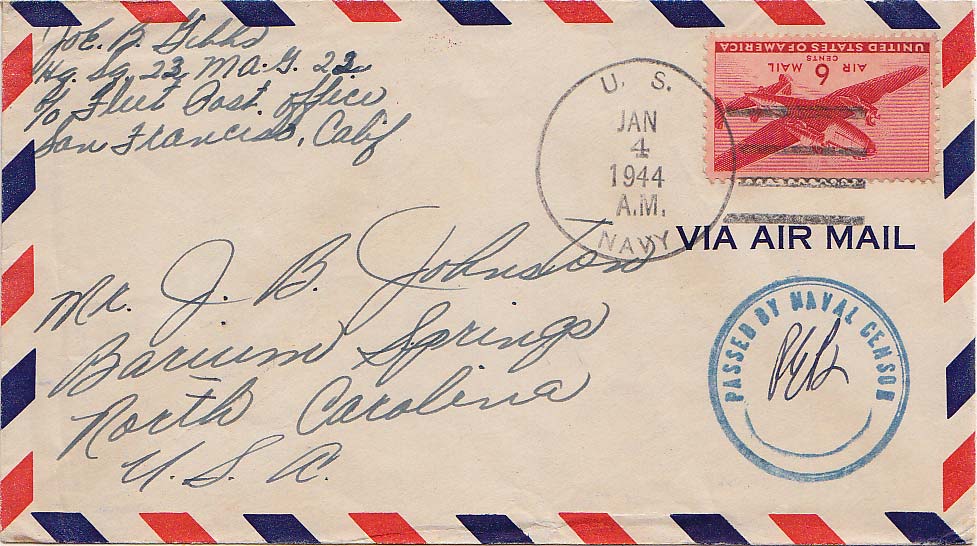 Joe. B. Gibbs
Hq. Sq. 23, M.A.G. 23
c/o Fleet Post Office
San Francisco, Calif
UNITED STATES OF AMERICA
AIR 6 MAIL
CENTS
U. S.
JAN
4
1944
A.M.
NAVY
VIA AIR MAIL
Mr. J. B. Johnston
Barium Springs
North Carolina
U. S. A.
PASSED BY NAVAL CENSOR